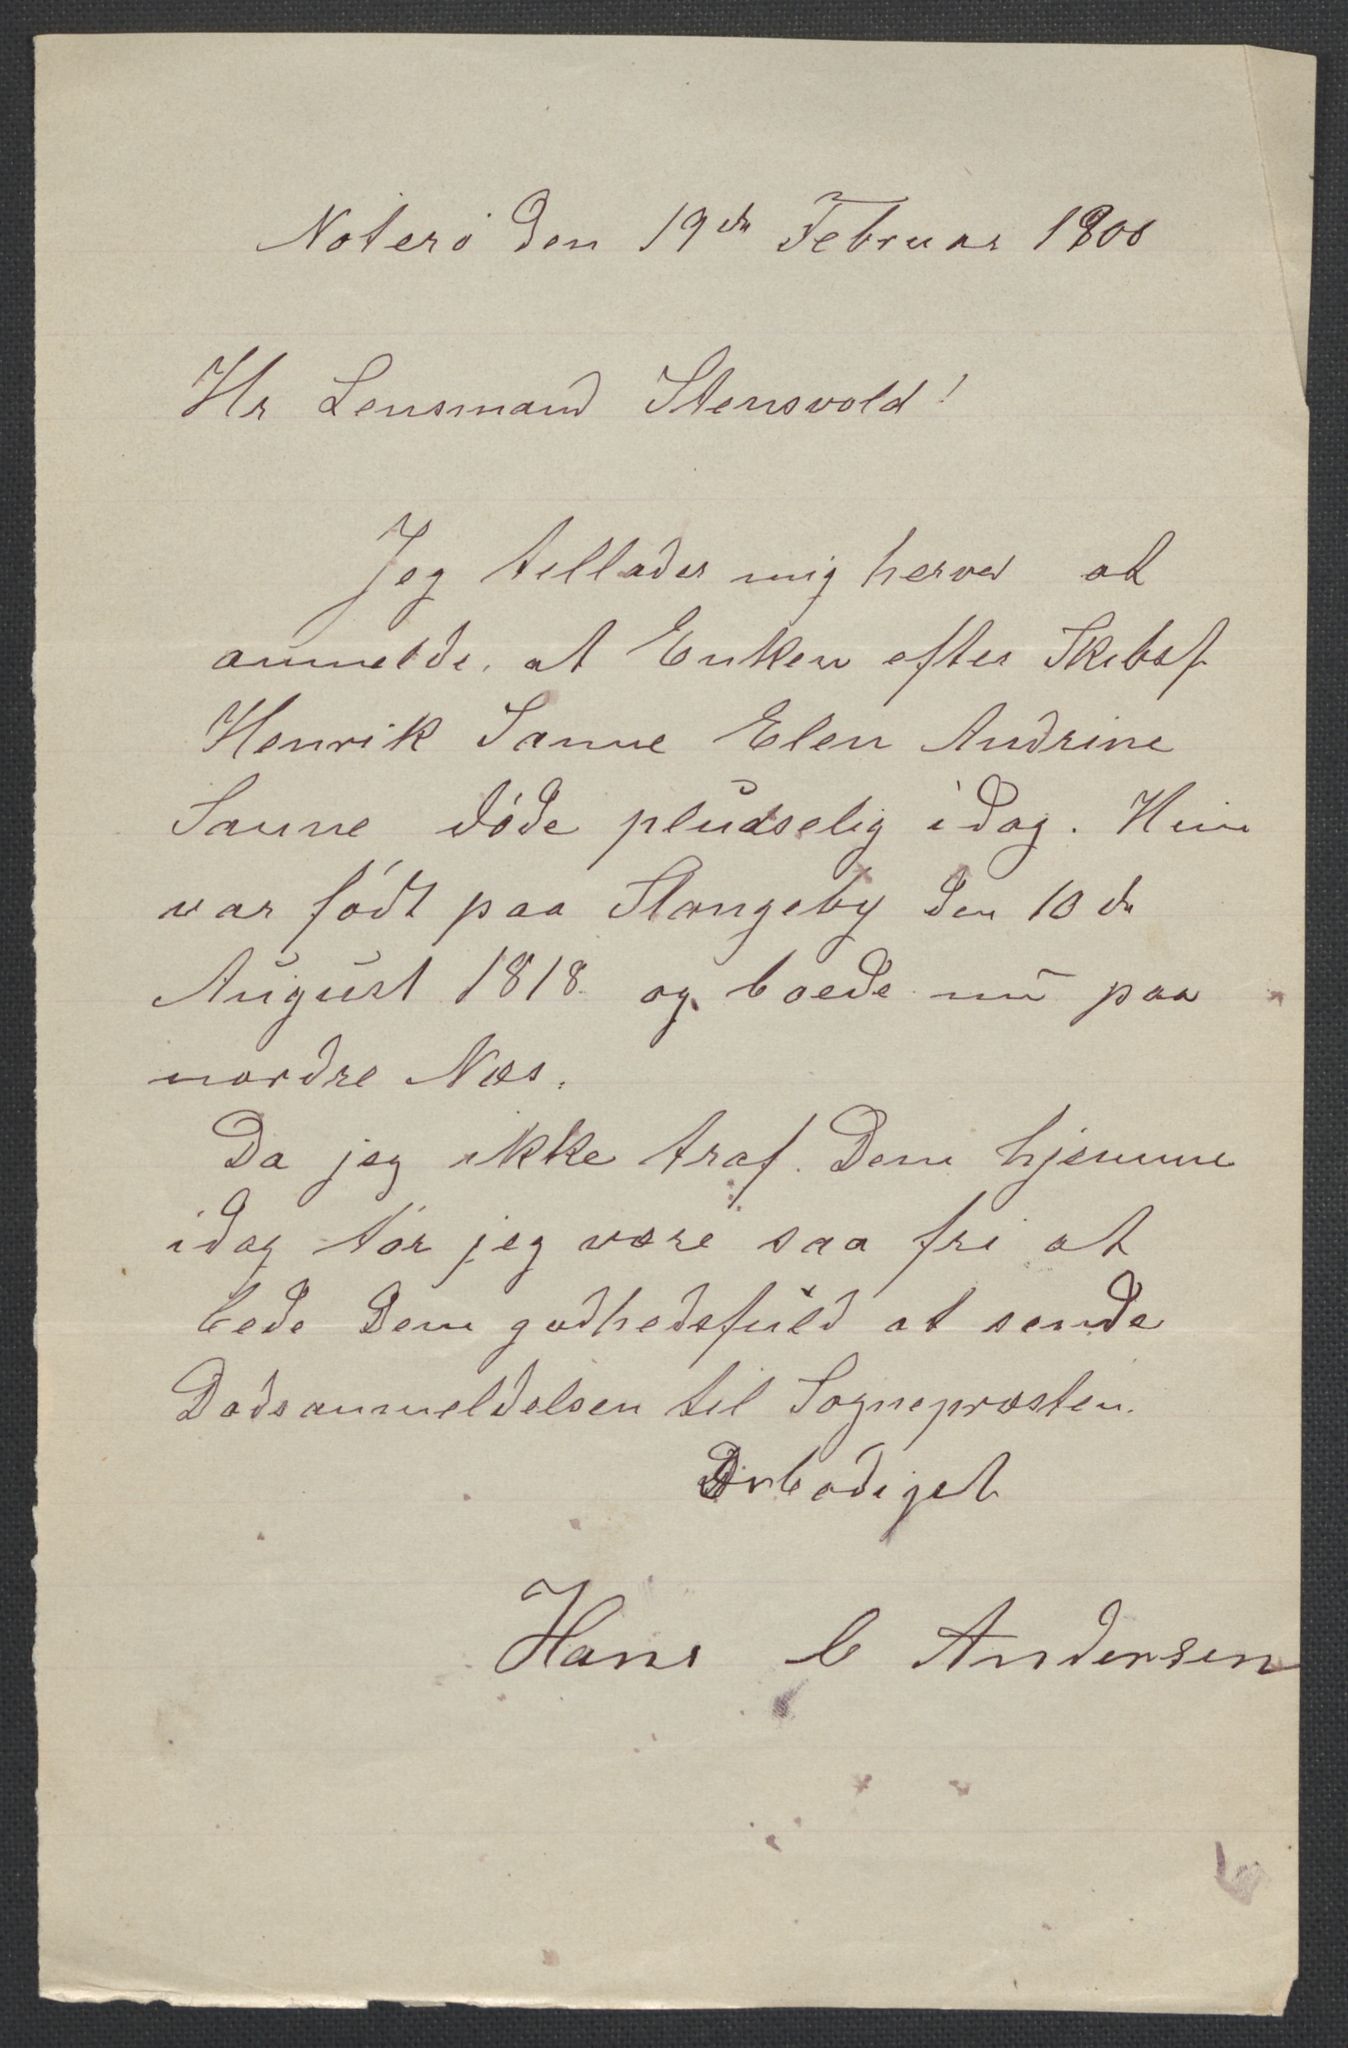 Nøterø den 19de Februar 1900
Hr Lensmand Stensvold!
Jeg tillader mig herved at
anmelde, at Enken efter Skibsf.
Henrik Sanne Elen Andrine
Sanne døde pludselig idag. Hun
var født paa Stangeby den 10de
August 1818 og boede nu paa
nordre Næs.
Da jeg ikke traf Dem hjemme
idag tør jeg være saa fri at
bede Dem godhedsfuld at sende
Dødsanmeldelsen til Sognepræsten.
Ærbødigst
Hans C Andersen